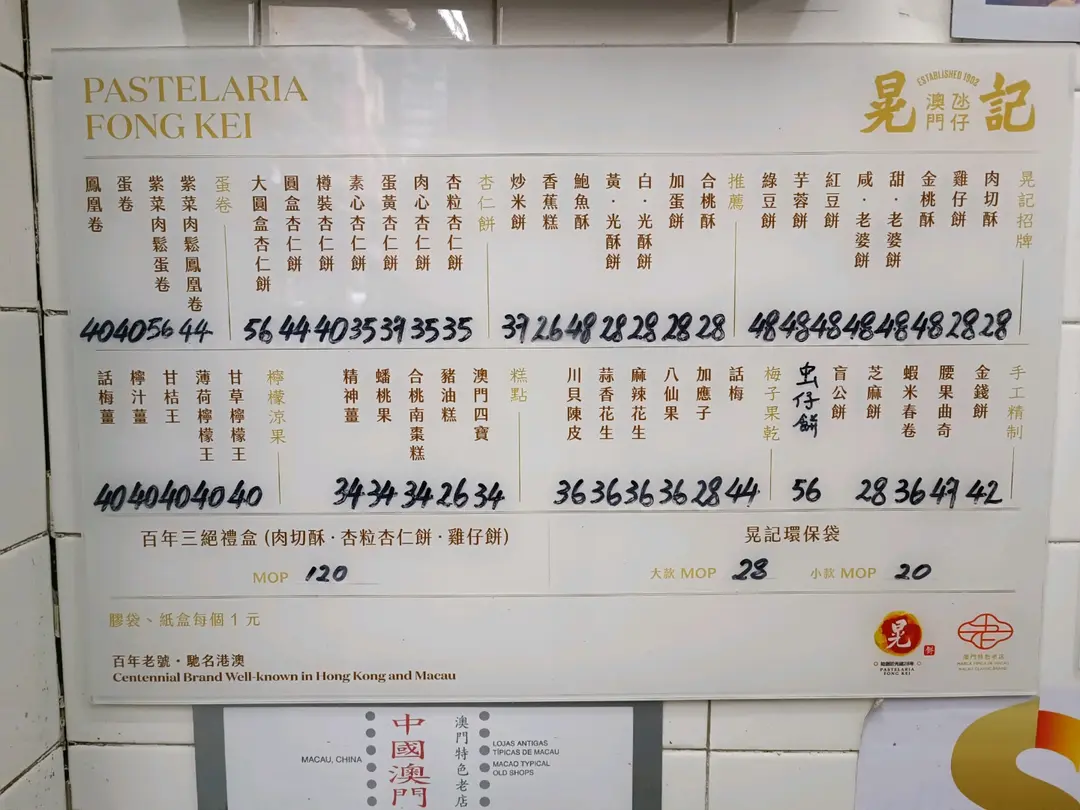 PASTELARIA
FONG KEI
ESTABLISHED 1903
晃記
澳門
氹仔
晃記招牌
肉切酥 28
雞仔餅 28
金桃酥 48
甜·老婆餅 48
咸·老婆餅 48
紅豆餅 48
芋蓉餅 48
綠豆餅 48
推薦
合桃酥 28
加蛋餅 28
白·光酥餅 28
黃·光酥餅 28
鮑魚酥 48
香蕉糕 26
炒米餅 37
杏仁餅
杏粒杏仁餅 35
肉心杏仁餅 35
蛋黃杏仁餅 37
素心杏仁餅 35
樽裝杏仁餅 40
圓盒杏仁餅 44
大圓盒杏仁餅 56
蛋卷
紫菜肉鬆鳳凰卷 44
紫菜肉鬆蛋卷 56
蛋卷 40
鳳凰卷 40
手工精制
金錢餅 42
腰果曲奇 47
蝦米春卷 36
芝麻餅 28
盲公餅
虫仔餅 56
梅子果乾
話梅 44
加應子 28
八仙果 36
麻辣花生 36
蒜香花生 36
川貝陳皮 36
糕點
澳門四寶 34
豬油糕 26
合桃南棗糕 34
蟠桃果 34
精神薑 34
檸檬涼果
甘草檸檬王 40
薄荷檸檬王 40
甘桔王 40
檸汁薑 40
話梅薑 40
百年三絕禮盒 (肉切酥·杏粒杏仁餅·雞仔餅)
MOP 120
晃記環保袋
大款 MOP 28 小款 MOP 20
膠袋、紙盒每個 1 元
百年老號·馳名港澳
Centennial Brand Well-known in Hong Kong and Macau
晃
PASTELARIA
FONG KEI
澳門特色老店
MACAU, CHINA
中國澳門
澳門特色老店
LOJAS ANTIGAS
TÍPICAS DE MACAU
MACAO TYPICAL
OLD SHOPS